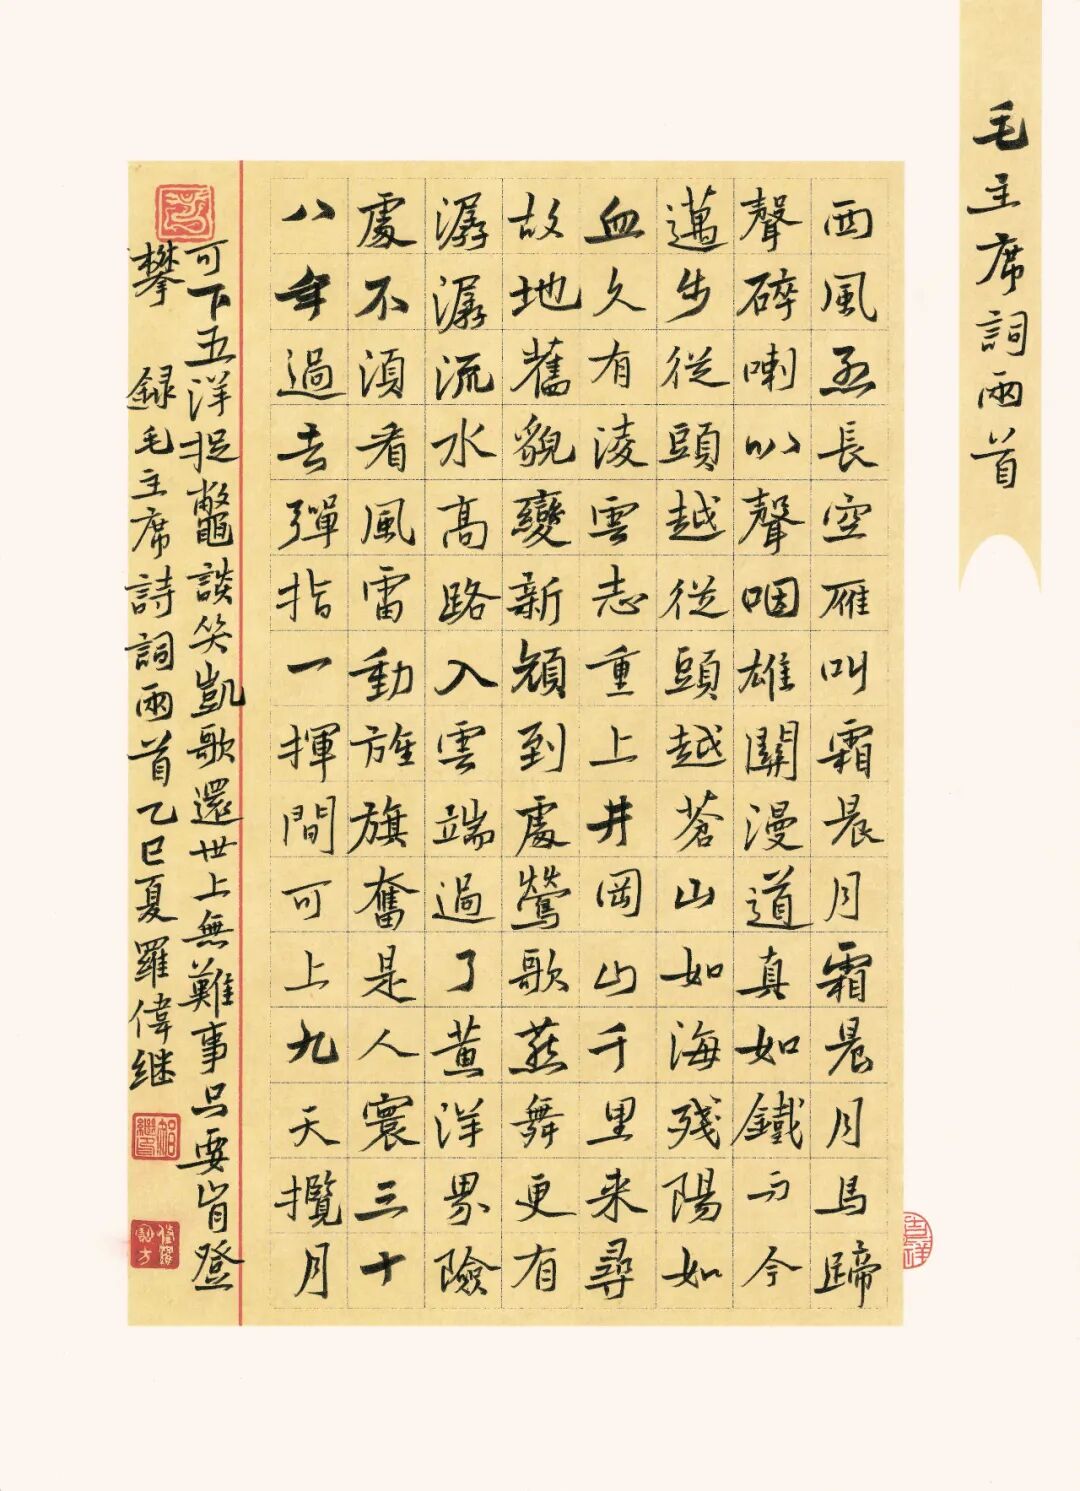 毛主席詞兩首
西風烈長空雁叫霜晨月霜晨月馬蹄
聲碎喇叭聲咽雄關漫道真如鐵而今
邁步從頭越從頭越蒼山如海殘陽如
血久有凌雲志重上井岡山千里来尋
故地舊貌變新顏到處鶯歌燕舞更有
潺潺流水高路入雲端過了黄洋界險
處不須看風雷動旌旗奮是人寰三十
八年過去彈指一揮間可上九天攬月
可下五洋捉鱉談笑凱歌還世上無難事只要肯登
攀 録毛主席詩詞兩首乙巳夏羅偉继
吉祥